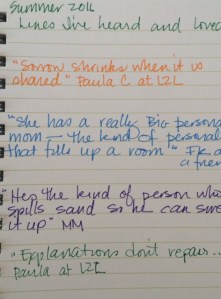 Summer 2016
Lines I've heard and Loved
"Sorrow shrinks when it is
shared" Paula C at LZL
"She has a really Big persona
mom — the kind of personal
that fills up a room"
a frien
the kind of person who
spills sand so he can swe
it up" MM
"Explanations don't repair...
Paula at LZL